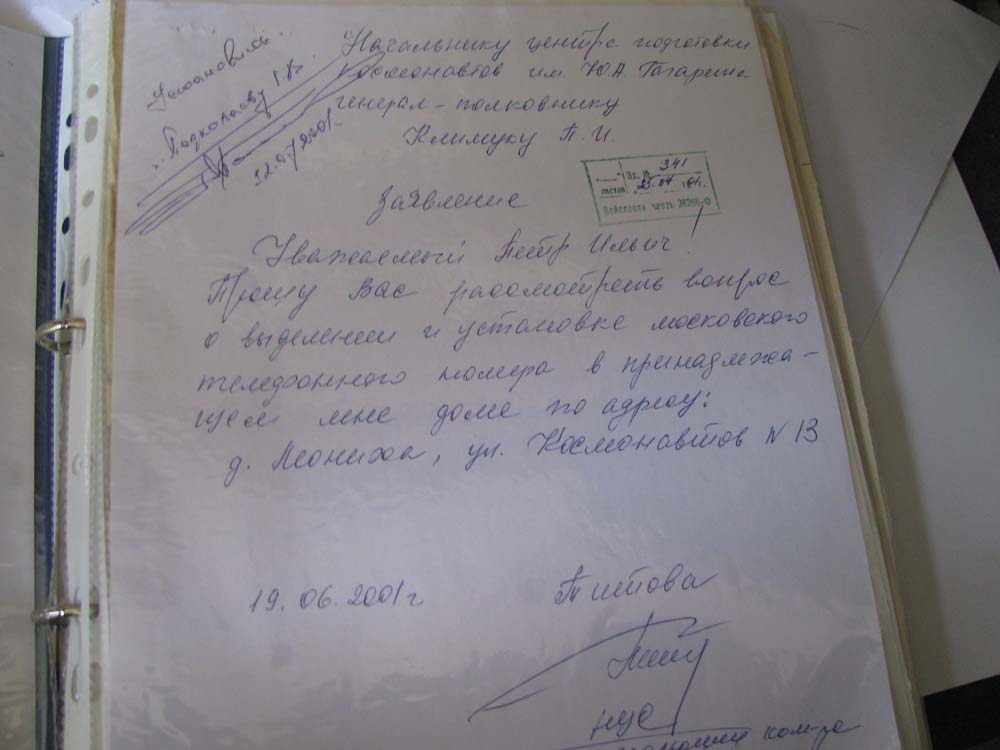 Установить
Начальнику центра подготовки
космонавтов им. Ю.А Гагарина
генерал-полковнику
Климуку П. И.
Вх. № 341
листов 25.07
Войсковая часть
Заявление
Уважаемый Петр Ильич!
Прошу Вас рассмотреть вопрос
о выделении и установке московского
телефонного номера в принадлежа-
щем мне доме по адресу:
д. Леониха, ул. Космонавтов N 13
19.06.2001г Титова